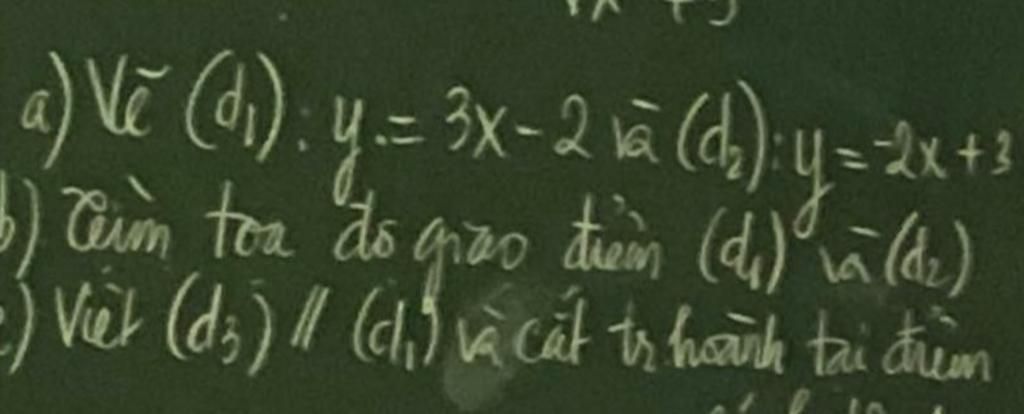 a) Vẽ (d₁): y = 3x - 2 và (d₂): y = -2x + 3
b) Tìm toạ độ giao điểm (d₁) và (d₂)
c) Viết (d₃) // (d₁) và cắt tr hoành tại điểm